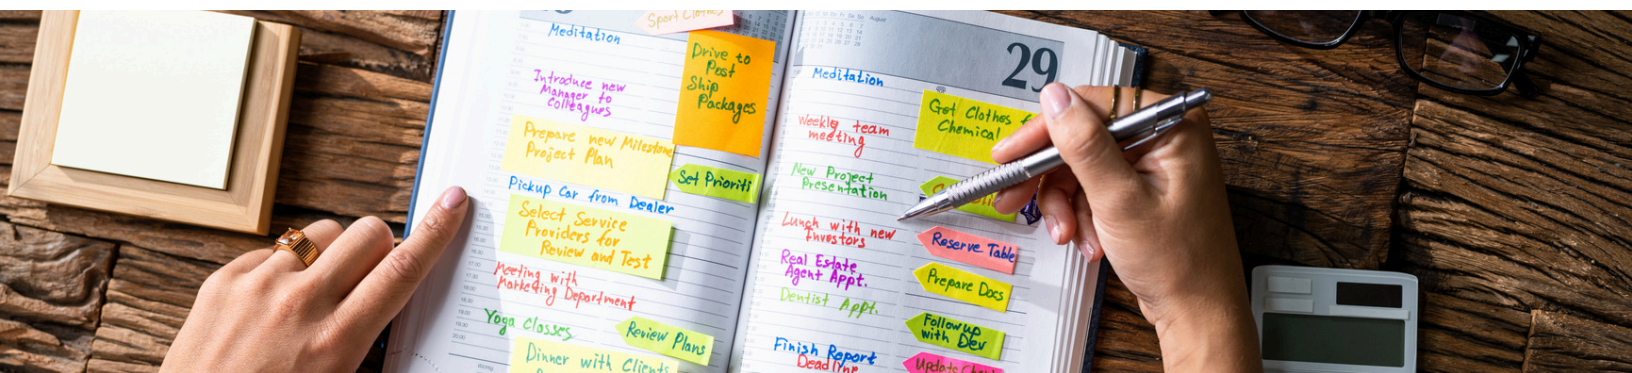 Sport Clothes
Meditation
Drive to
Post
Ship
Packages
Introduce new
Manager to
Colleagues
Prepare new Milestone
Project Plan
Set Prioriti
Pickup Car from Dealer
Select Service
Providers for
Review and Test
Meeting with
Marketing Department
Yoga Classes
Review Plans
Dinner with Clients
August
29
Meditation
Get Clothes f
Chemical
Weekly team
meeting
New Project
Presentation
Lunch with new
Investors
Reserve Table
Real Estate
Agent Appt.
Prepare Docs
Dentist Appt.
Follow up
with Dev
Finish Report
Deadline
Update